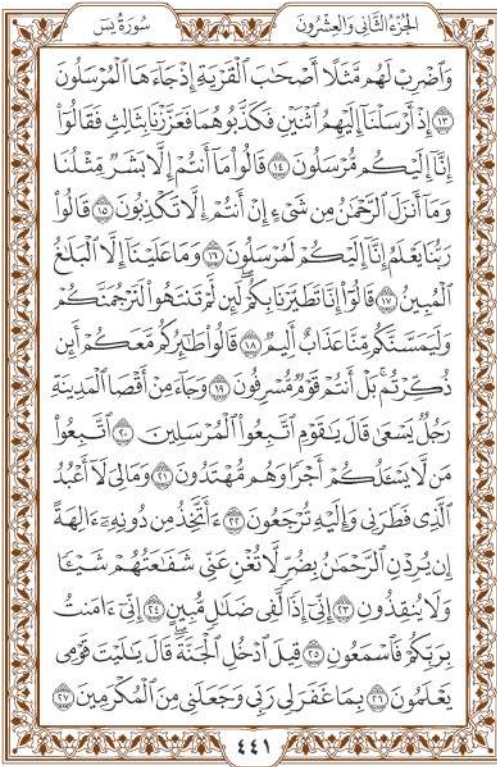 الجزء الثاني والعشرون
سورة يس
وَٱضۡرِبۡ لَهُم مَّثَلًا أَصۡحَٰبَ ٱلۡقَرۡيَةِ إِذۡ جَآءَهَا ٱلۡمُرۡسَلُونَ
١٣ إِذۡ أَرۡسَلۡنَآ إِلَيۡهِمُ ٱثۡنَيۡنِ فَكَذَّبُوهُمَا فَعَزَّزۡنَا بِثَالِثٖ فَقَالُوٓاْ
إِنَّآ إِلَيۡكُم مُّرۡسَلُونَ ١٤ قَالُواْ مَآ أَنتُمۡ إِلَّا بَشَرٞ مِّثۡلُنَا
وَمَآ أَنزَلَ ٱلرَّحۡمَٰنُ مِن شَيۡءٍ إِنۡ أَنتُمۡ إِلَّا تَكۡذِبُونَ ١٥ قَالُواْ
رَبُّنَا يَعۡلَمُ إِنَّآ إِلَيۡكُمۡ لَمُرۡسَلُونَ ١٦ وَمَا عَلَيۡنَآ إِلَّا ٱلۡبَلَٰغُ
ٱلۡمُبِينُ ١٧ قَالُوٓاْ إِنَّا تَطَيَّرۡنَا بِكُمۡۖ لَئِن لَّمۡ تَنتَهُواْ لَنَرۡجُمَنَّكُمۡ
وَلَيَمَسَّنَّكُم مِّنَّا عَذَابٌ أَلِيمٞ ١٨ قَالُواْ طَٰٓئِرُكُم مَّعَكُمۡ أَئِن
ذُكِّرۡتُمۚ بَلۡ أَنتُمۡ قَوۡمٞ مُّسۡرِفُونَ ١٩ وَجَآءَ مِنۡ أَقۡصَا ٱلۡمَدِينَةِ
رَجُلٞ يَسۡعَىٰ قَالَ يَٰقَوۡمِ ٱتَّبِعُواْ ٱلۡمُرۡسَلِينَ ٢٠ ٱتَّبِعُواْ
مَن لَّا يَسۡـَٔلُكُمۡ أَجۡرٗا وَهُم مُّهۡتَدُونَ ٢١ وَمَالِيَ لَآ أَعۡبُدُ
ٱلَّذِي فَطَرَنِي وَإِلَيۡهِ تُرۡجَعُونَ ٢٢ ءَأَتَّخِذُ مِن دُونِهِۦٓ ءَالِهَةً
إِن يُرِدۡنِ ٱلرَّحۡمَٰنُ بِضُرّٖ لَّا تُغۡنِ عَنِّي شَفَٰعَتُهُمۡ شَيۡـٔٗا
وَلَا يُنقِذُونِ ٢٣ إِنِّيٓ إِذٗا لَّفِي ضَلَٰلٖ مُّبِينٍ ٢٤ إِنِّيٓ ءَامَنتُ
بِرَبِّكُمۡ فَٱسۡمَعُونِ ٢٥ قِيلَ ٱدۡخُلِ ٱلۡجَنَّةَۖ قَالَ يَٰلَيۡتَ قَوۡمِي
يَعۡلَمُونَ ٢٦ بِمَا غَفَرَ لِي رَبِّي وَجَعَلَنِي مِنَ ٱلۡمُكۡرَمِينَ ٢٧
٤٤١